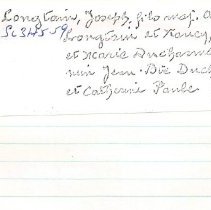 Longtain, Joseph, filo nat. A
Sc 345-59 Longtain et Nancy,
et Marie Ducharme
min Jean-Bte Duch
et Catherine Paube